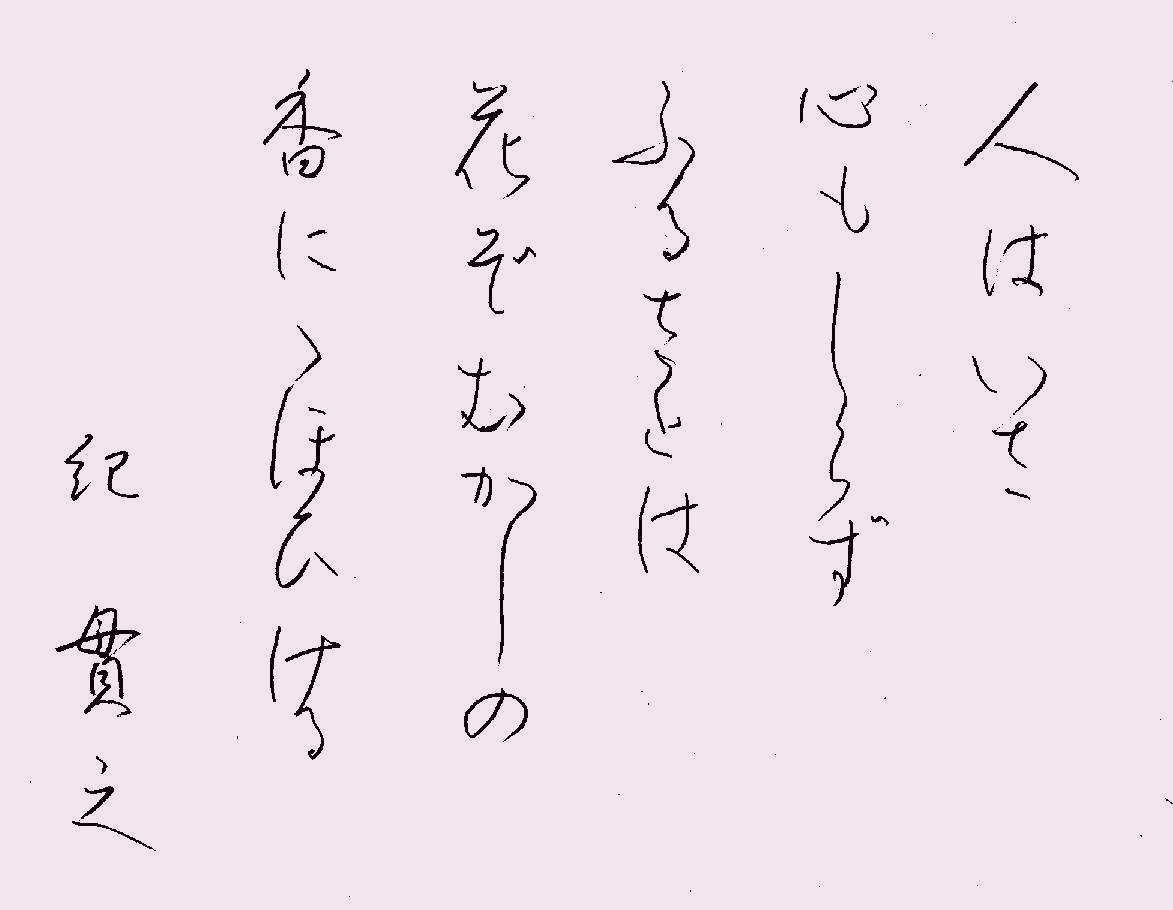 人はいさ
心もしらず
ふるさとは
花ぞむかしの
香ににほひける
紀貫之